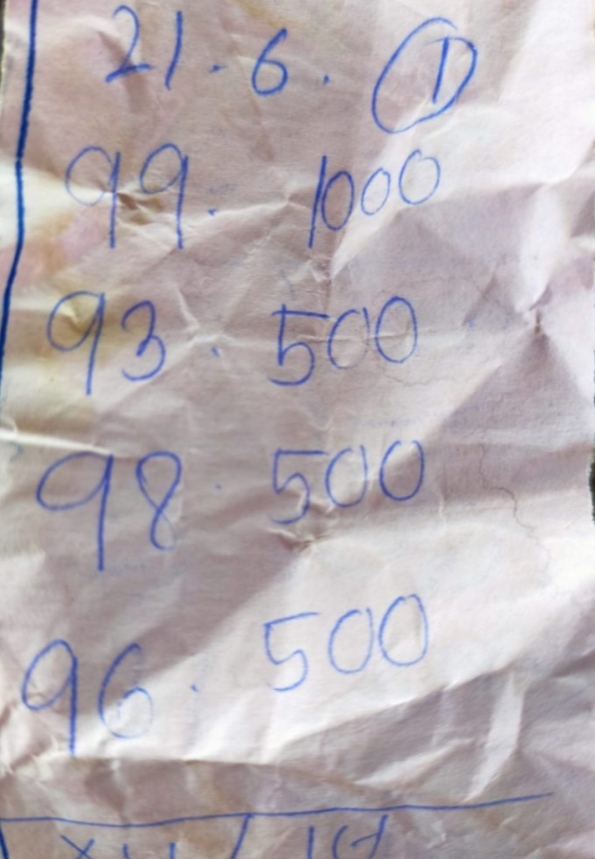 21.6. ①
99. 1000
93. 500
98. 500
96. 500